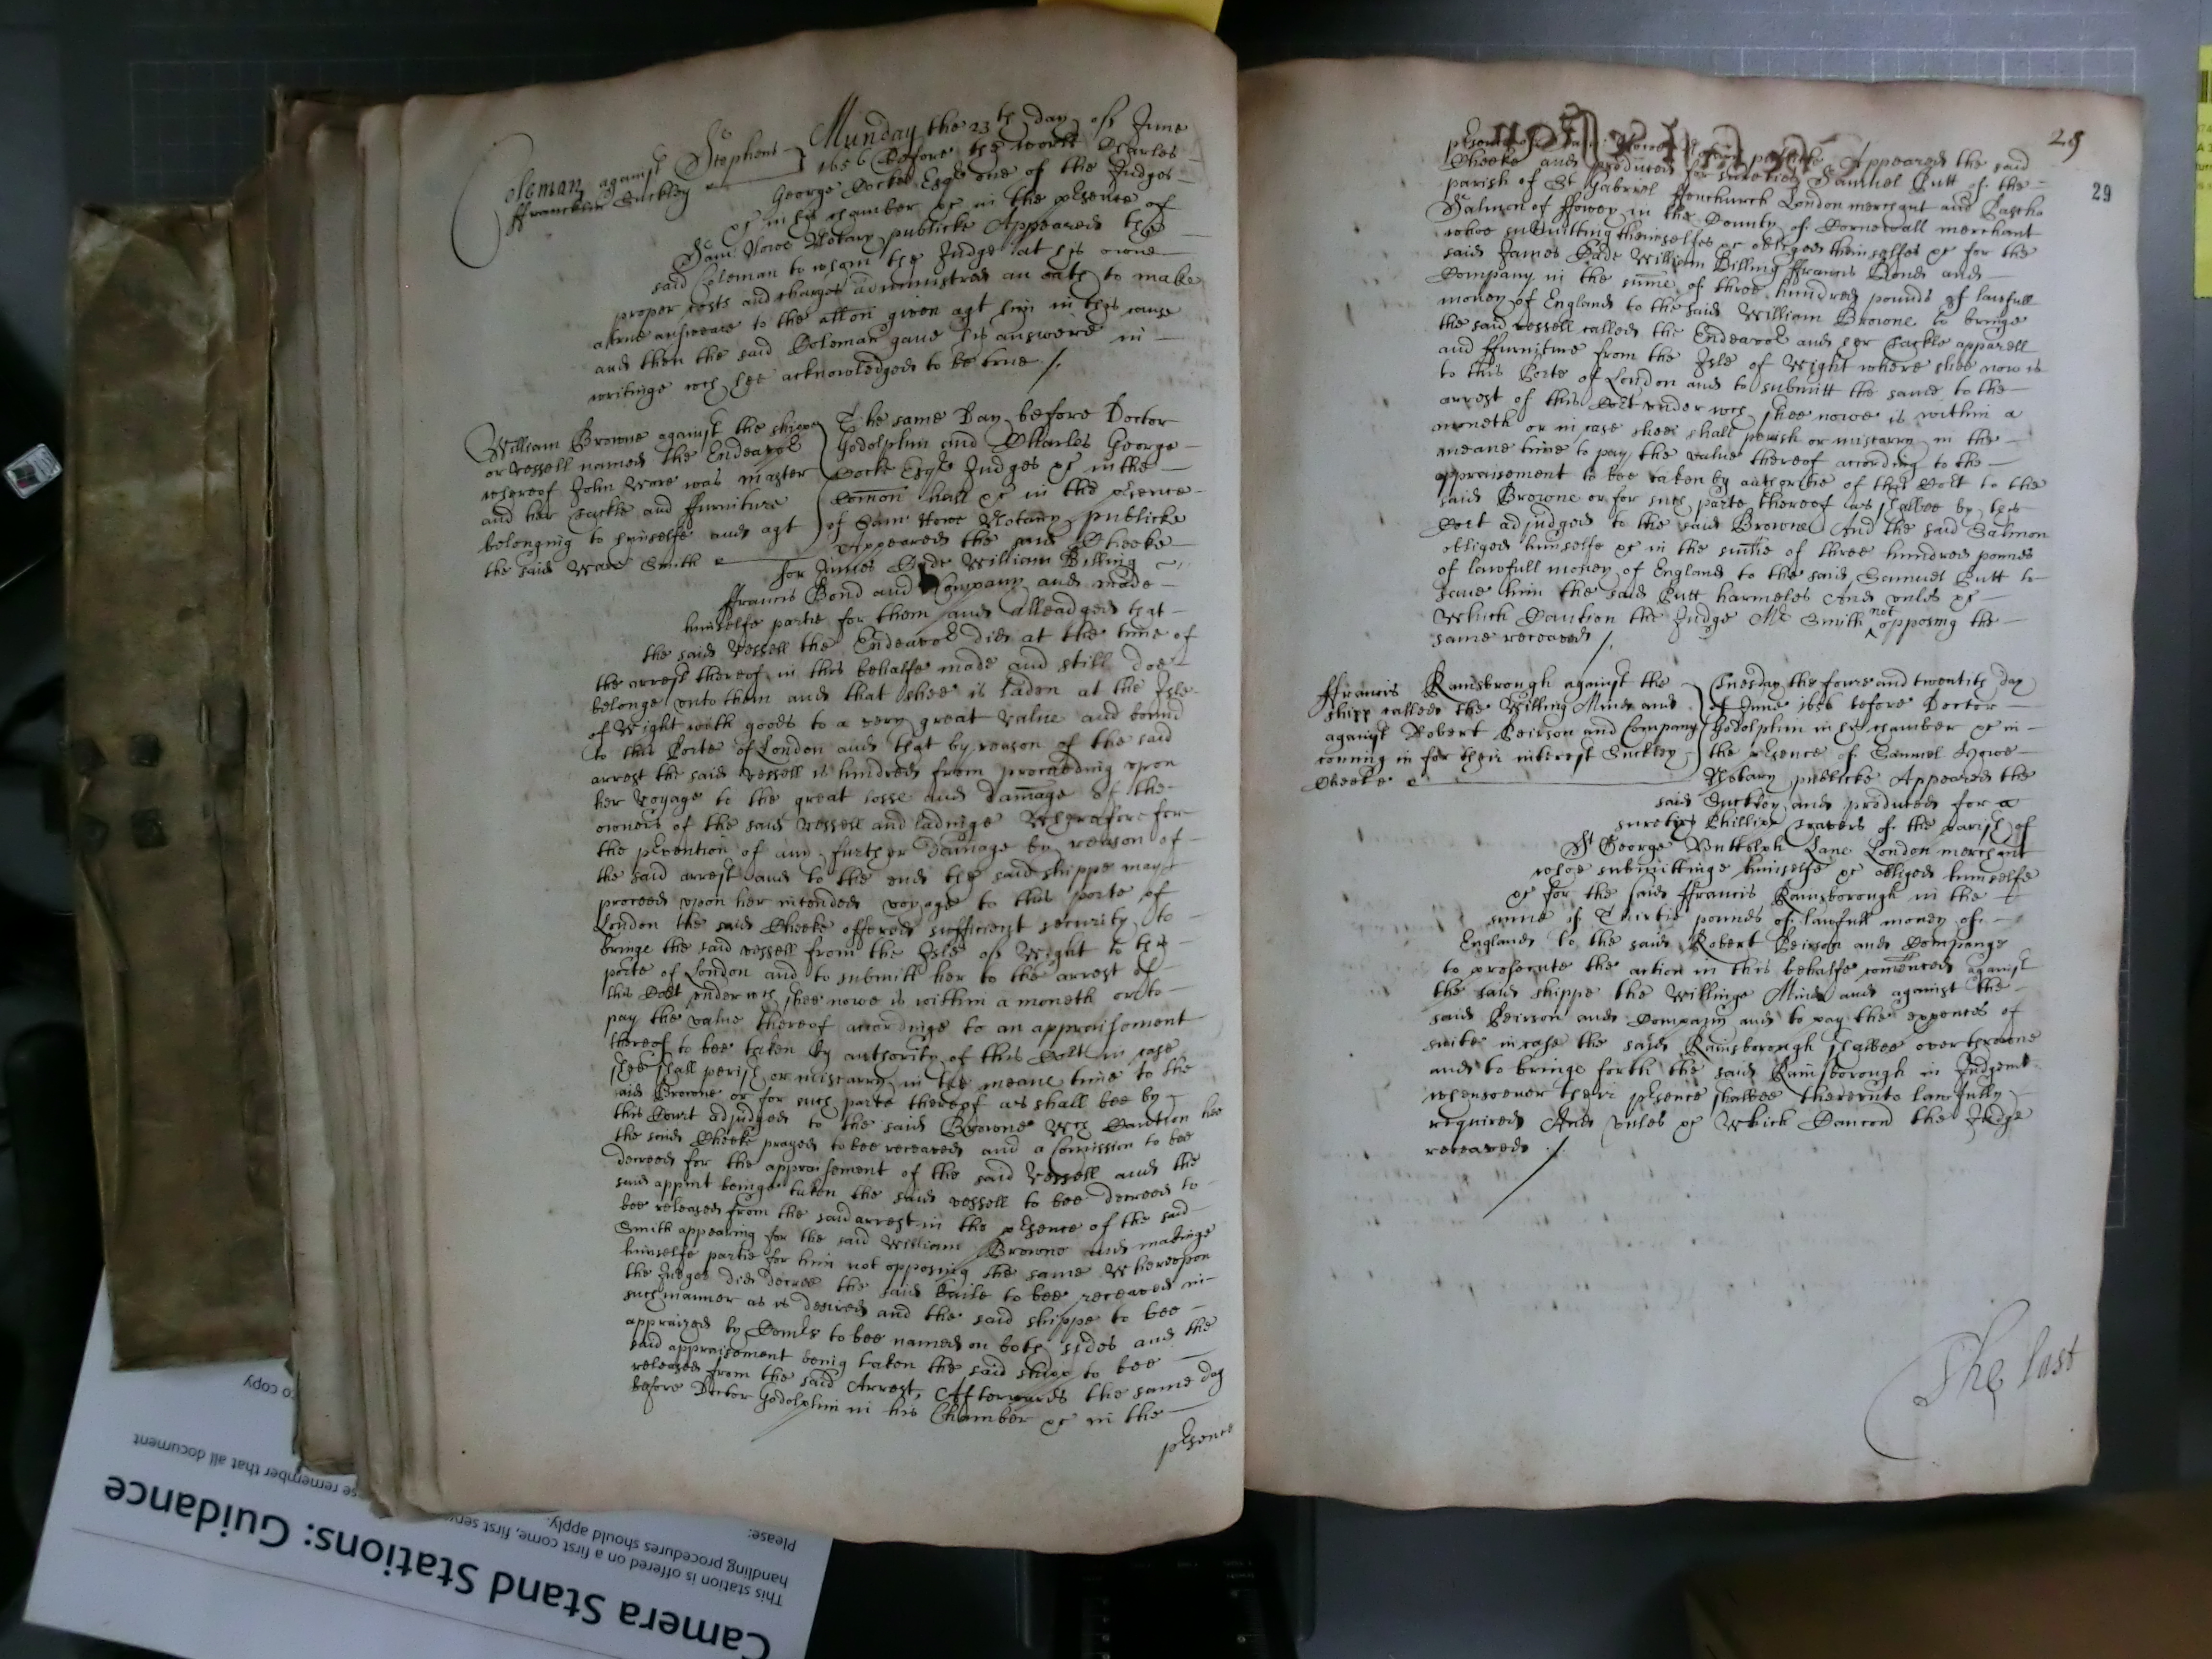 Coleman against Stephens
ffrancklin Suckley
Munday the 23th day of June
1656 Before the worll Charles
George Cocke Esqr one of the Judges
&c in his chamber &c in the presence of
Sam: Howe Notary publicke Appeared the
said Coleman to whom the Judge at his owne
proper costs and charges administred an oath to make
a true answeare to the allon given agt him in this cause
and then the said Coleman gave his answere in
writinge wch hee acknowledged to be true /.
William Browne against the shippe
or vessell named the Endeavor
whereof John Ware was master
and her tackle and ffurniture
belonging to himselfe and agt
the said Ware Smith
The same Day before Doctor
Godolphin and Charles George
Cocke Esqr Judges &c in the
Comon hall &c in the presence
of Sam: Howe Notary publicke
Appeared the said Cheeke
for James Cade William Billing
ffrancis Bond and Company and made
himselfe partie for them and alleadged that
the said vessell the Endeavor did at the time of
the arrest thereof in this behalfe made and still doe
belonge unto them and that shee is laden at the Isle
of Wight with goods to a very great value and bound
to this Porte of London and that by reason of the said
arrest the said vessell is hindred from proceeding upon
her voyage to the great losse and damage of the
owners of the said vessell and ladinge Wherefore for
the prevention of any further damage by reason of
the said arrest and to the end the said shippe may
proceed upon her intended voyage to this porte of
London the said Cheeke offered sufficient security to
bringe the said vessell from the Isle of Wight to the
porte of London and to submitt her to the arrest of
this Cort under wch shee nowe is within a moneth or to
pay the value thereof accordinge to an appraisement
thereof to bee taken by authority of this Cort in case
shee shall perish or miscarry in the meane time to the
said Browne or for such parte thereof as shall bee by
this Court adjudged to the said Browne Wch Caution hee
the said Cheeke prayed to bee receaved and a Comission to bee
decreed for the appraisement of the said vessell and the
said appmt beinge taken the said vessell to bee decreed to
bee released from the said arrest in the presence of the said
Smith appearing for the said William Browne and makinge
himselfe partie for him not opposing the same Whereupon
the Judges did decree the said baile to bee receaved in
such manner as is desired and the said shippe to bee
appraized by Comrs to bee named on both sides and the
said appraisement being taken the said shipp to bee
released from the said Arrest, Afterwards the same day
before Doctor Godolphin in his Chamber &c in the
presence
29
29
presence of Appeared the said
Cheeke and produced for sureties Samuel Putt of the
parish of St Gabriel ffenchurch London merchant and
Salmon of ffowey in the County of Cornewall merchant
whoe submitting themselves &c obliged themselfes &c for the
said James Cade William Billing ffrancis Bond and
Company in the sume of three hundred pounds of lawfull
money of England to the said William Browne to bringe
the said vessell called the Endeavor and her tackle apparell
and ffurniture from the Isle of Wight where shee now is
to this Porte of London and to submitt the same to the
arrest of this Cort under wch shee nowe is within a
moneth or in case shee shall perish or miscarry in the
meane time to pay the value thereof according to the
appraisement to bee taken by authoritie of this Cort to the
said Browne or for such parte thereof as shalbee by this
Cort adjudged to the said Browne And the said Salmon
obliged himselfe &c in the sume of three hundred pounds
of lawfull money of England to the said Samuel Putt to
save him the said Putt harmeles And unles &c
Which Caution the Judge Mr Smith not opposing the
same receaved /.
ffrancis Rainsbrough against the
shipp called the Willing Minde and
against Robert Peirson and Company
coming in for their interest Suckley
Cheeke
Tuesday the foure and twentith day
of June 1656 before Doctor
Godolphin in his chamber &c in
the presence of Samuel Howe
Notary publicke Appeared the
said Suckley and produced for a
suretie Phillipp Travers of the parish of
St George Buttolph Lane London merchant
whoe submittinge himselfe &c obliged himselfe
&c for the said ffrancis Rainsborough in the
sume of Thirtie pounds of lawfull money of
England to the said Robert Peirson and Company
to prosecute the action in this behalfe comenced against
the said shippe the Willinge Minde and against the
said Peirson and Company and to pay the expences of
suite in case the said Rainsborough shalbee overthrowne
and to bringe forth the said Rainsborough in Judgemt
whensoever their presence shalbee thereunto lawfully
required And unles &c Which Caucon the Judge
receaved /.
The last
Camera Stand Stations: Guidance
This station is offered on a first come, first
handling procedures should apply.
Please:
remember that all document
to copy